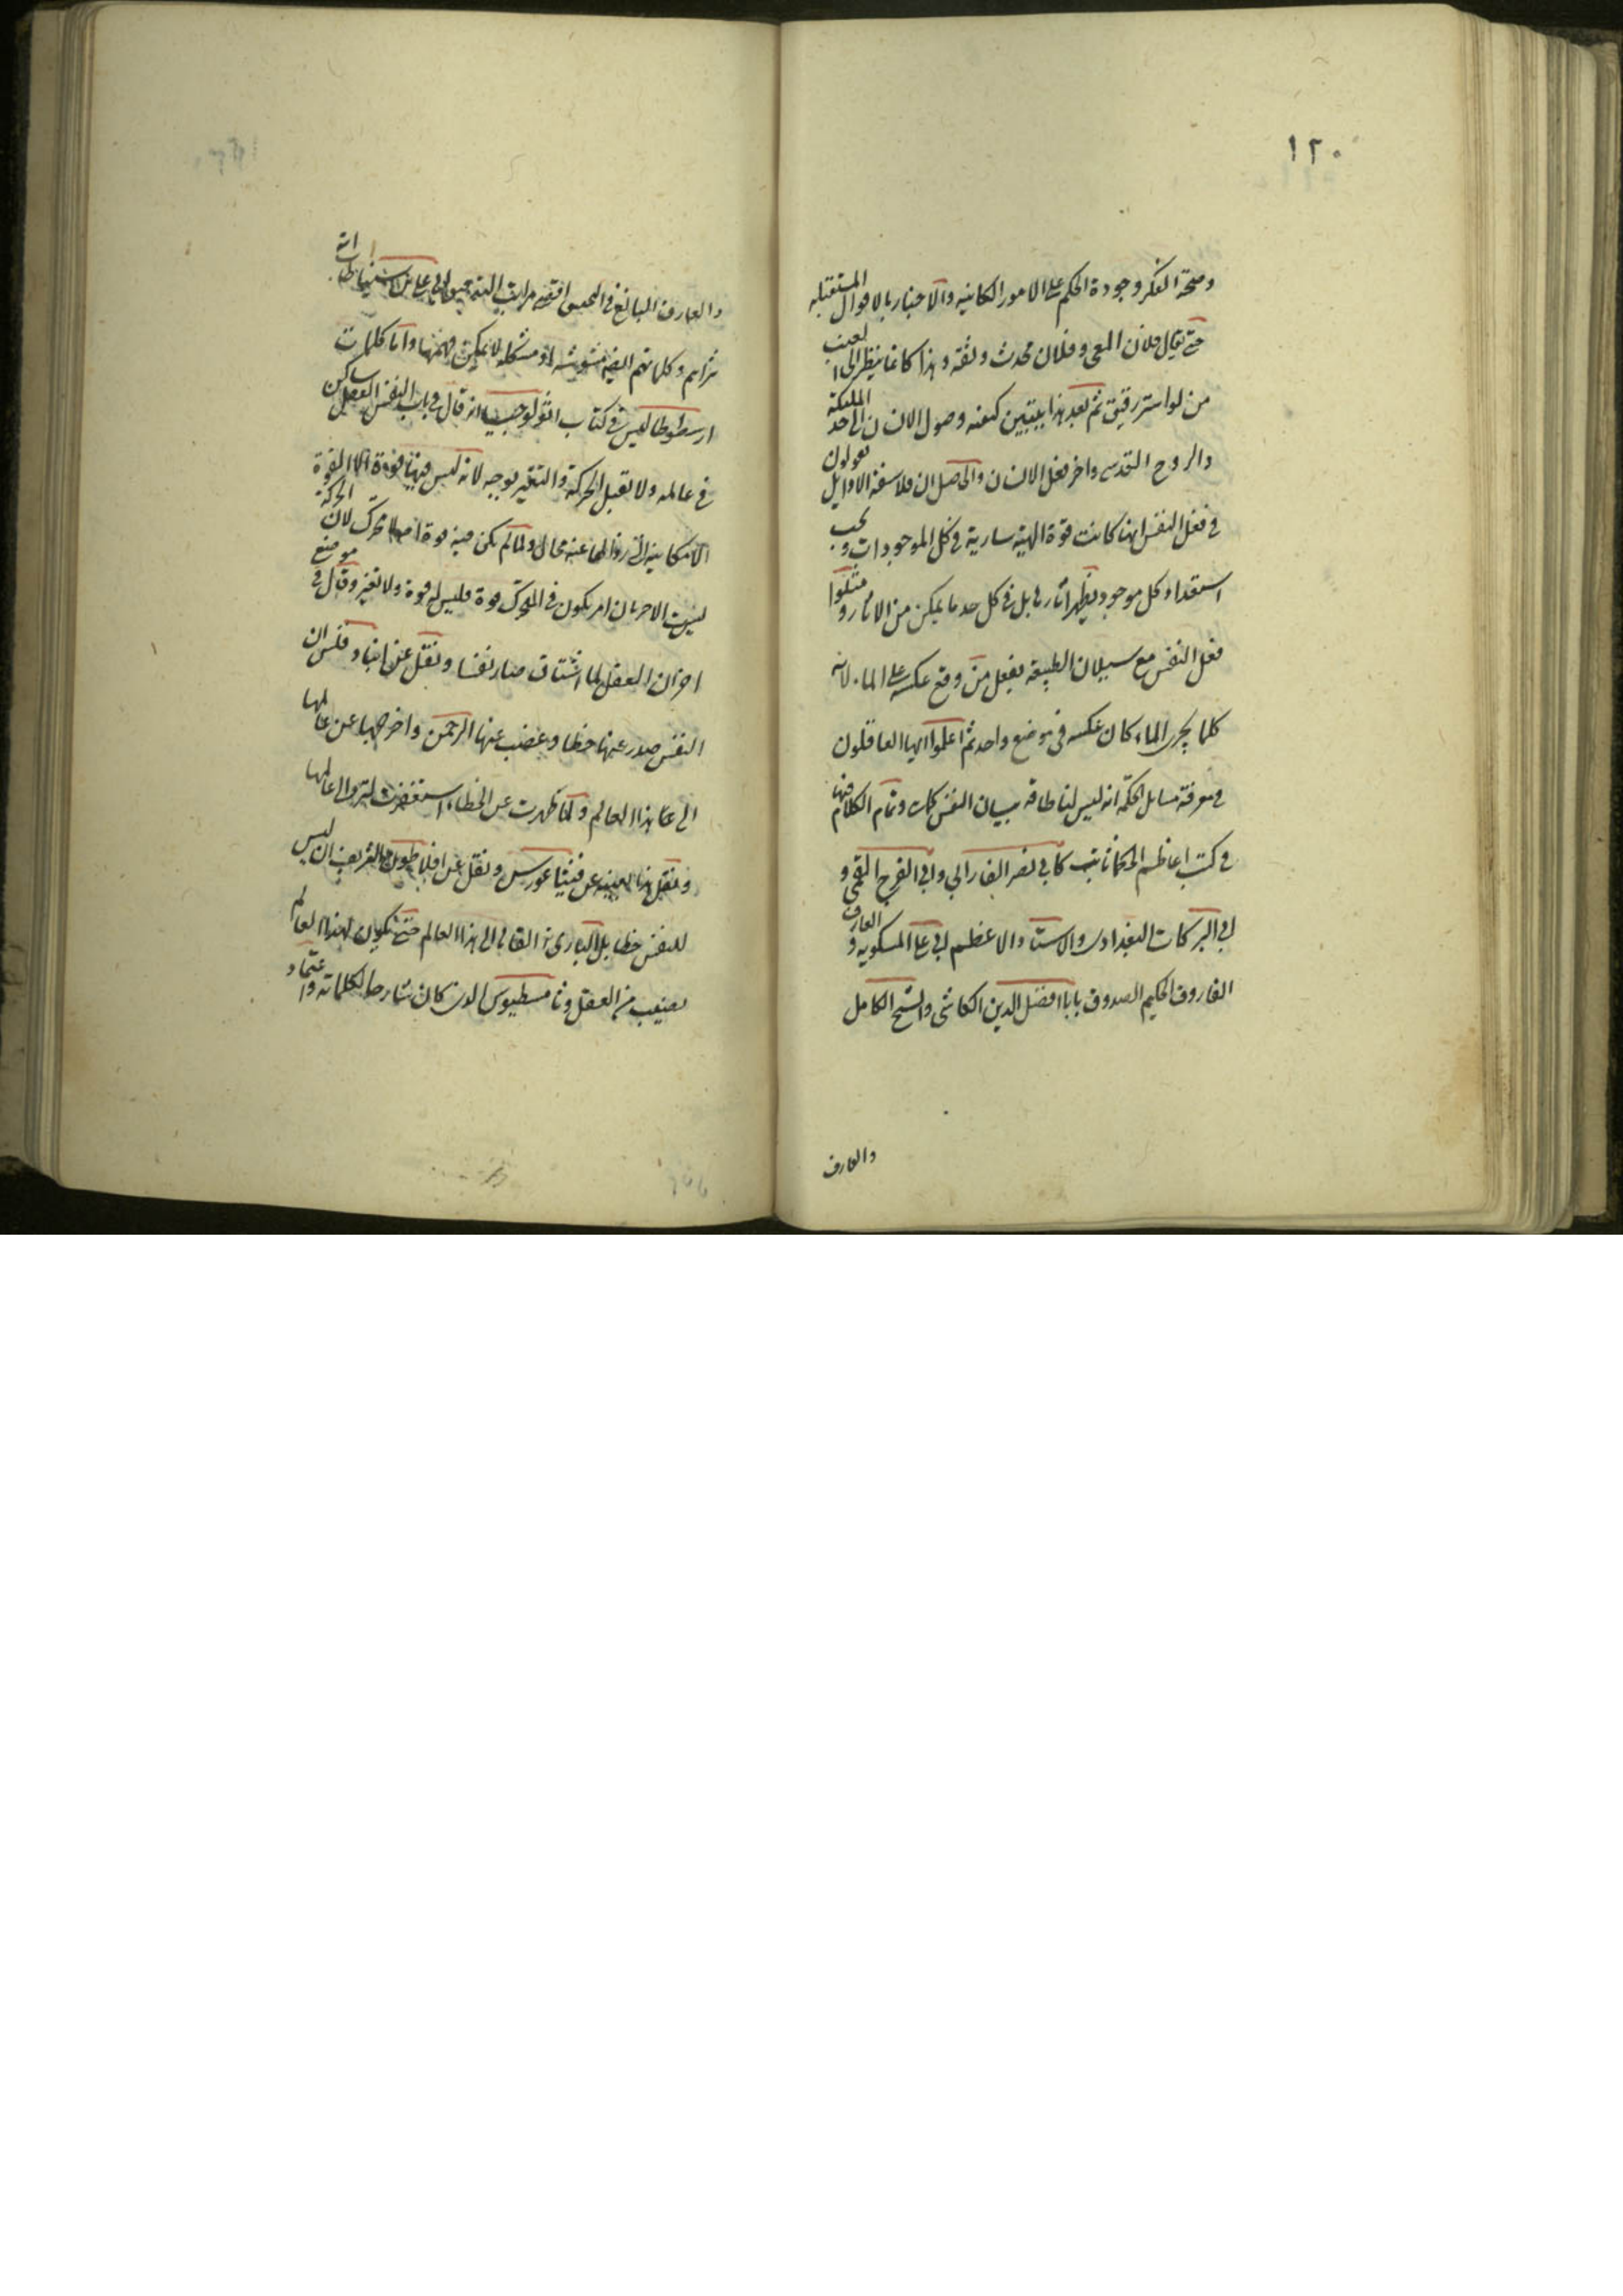 ١٢٠
وصحة الفكر وجودة الحكم على الامور الكاينه والاخبار بالاحوال المستقبله
حتى يقال فلان المعى وفلان محدث وثقة وهذا كانما ينظر الى الغيب
من ستر رقيق ثم بعد هذا يتبين كيفيه وصول الانسان الى حد الملكية
والروح القدسى واخر فعل الانسان والحاصل ان فلاسفة الاوايل يقولون
فى فعل النفس انها كانت قوة الهية سارية فى كل الموجودات وبحسب
استعداد كل موجود يظهر اثارها بل فى كل حد ما يمكن من الاثار ومثلوا
فعل النفس مع سيلان الطبيعه بفعل من وقع عكسه على الماء لانه
كلما يجرى الماء كان عكسه فى موضع واحد ثم اعلموا ايها العاقلون
فى معرفة مسايل الحكمة انه ليس لنا طاقه ببيان النفس وتمام الكلام فيها
فى كتب اعاظم الحكماء كابى نصر الفارابى وابى الفرج القمى و
ابى البركات البغدادى والاستاد الاعظم ابى على المسكويه والعارف
الفاروق الحكيم الصدوق بابا افضل الدين الكاشى والشيخ الكامل
والعارف
والعارف البالغ فى اقصى مراتب ابى على
وكلماتهم مشوشه او مشكله لا يمكن فهمها واما كلمات
ارسطوطاليس فى كتاب اثولوجيا انه قال فى باب النفس العقل ساكن
فى عالمه ولا يقبل الحركة والتغير بوجه لانه ليس فيها قوة الا القوة
الامكانية التى زوالها عنه محال ولما لم يكن فيه قوة اصلا لا محرك لان الحركة
ليست الا خروج امر يكون فى المحرك قوة فليس له قوة ولا تغير وقال فى موضع
اخر ان العقل لما اشتاق صار نفسا ونقل عن انبادقلس ان
النفس صدر عنها خطا وغضب عنها الرحمن واخرجها عن عالمها
الى هذا العالم ولما طهرت عن الخطاء استغفرت لترد الى عالمها
ونقل هذا بعينه عن فيثاغورس ونقل عن افلاطون الشريف ان ليس
للنفس خطا بل البارى تعالى القاها الى هذا العالم حتى يكون لهذا العالم
نصيب من العقل وثامسطيوس الذى كان شارحا لكلماته واعتماد